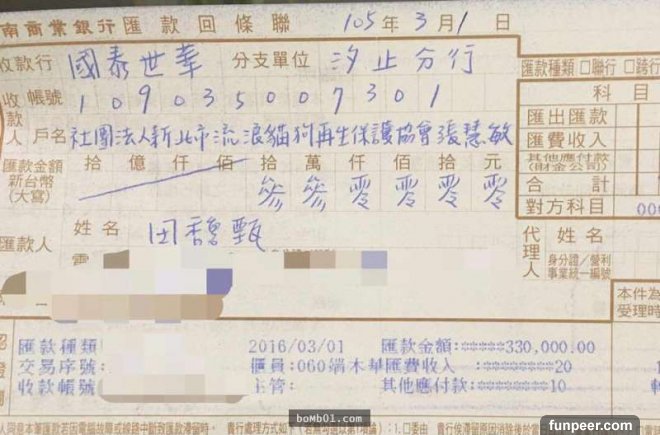 南商業銀行匯款回條聯 105年3月1日
收款行 國泰世華 分支單位 汐止分行 匯款種類 □聯行 □跨行
收款人 帳號 109035007301
戶名 社團法人新北市流浪貓狗再生保護協會張慧敏
匯款金額 新台幣(大寫) 拾億仟佰拾萬仟佰拾元
參參零零零零
科目
匯出匯款
匯費收入
其他應付款(財金公司)
合計
對方科目 000
匯款人 姓名 田馥甄
電
代理人 身分證/營利事業統一編號
本件為
受理時
匯款種類: 2016/03/01 匯款金額:*****330,000.00
交易序號: 櫃員:060端木華 匯費收入:********20
收款帳號: 主管: 其他應付款:********10
bomb01.com
funpeer.com